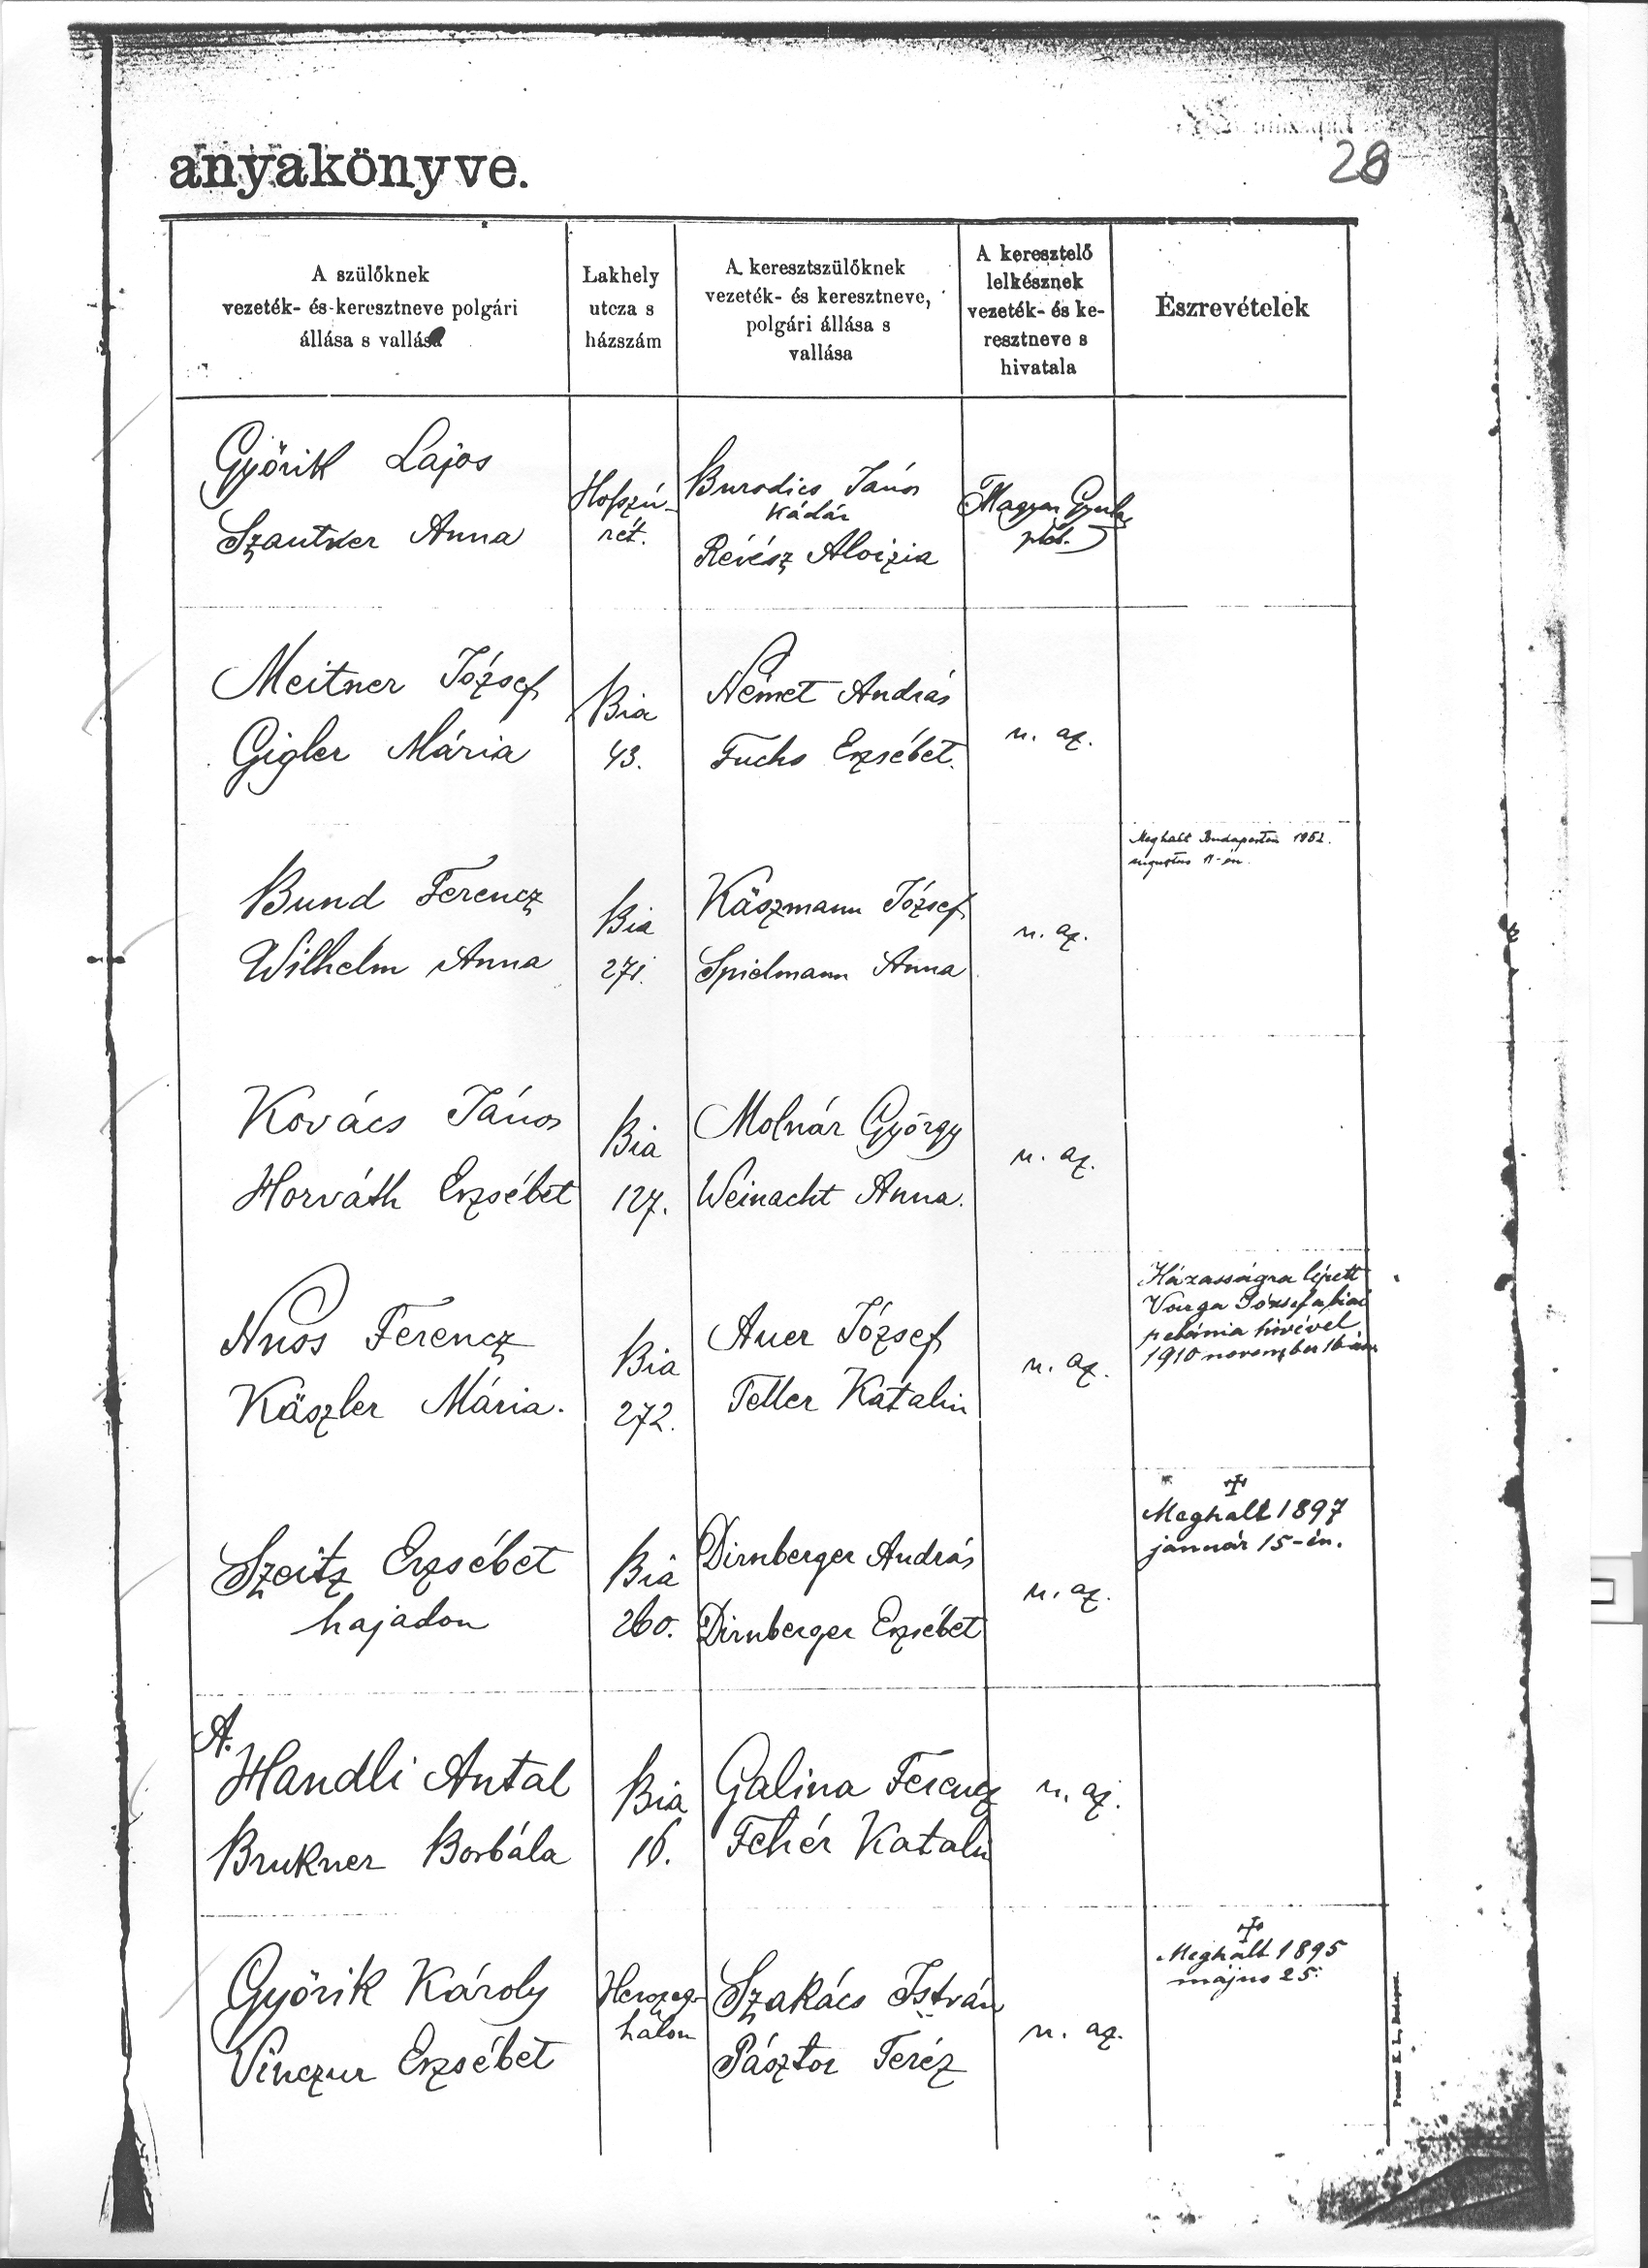 anyakönyve.
28
A szülőknek
vezeték- és keresztneve polgári
állása s vallása
Lakhely
utcza s
házszám
A keresztszülőknek
vezeték- és keresztneve,
polgári állása s
vallása
A keresztelő
lelkésznek
vezeték- és ke-
resztneve s
hivatala
Észrevételek
Györik Lajos
Szautner Anna
Hoszú-
rét.
Burodics János
Kádár
Révész Aloizia
Magyar Gyula
pléb.
Meitner József
Gigler Mária
Bia
43.
Német András
Fuchs Erzsébet.
u. az.
Bund Ferencz
Wilhelm Anna
Bia
271.
Käszmann József
Spielmann Anna
u. az.
Meghalt Budapesten 1952.
augusztus 11-én.
Kovács János
Horváth Erzsébet
Bia
127.
Molnár György
Weinacht Anna.
u. az.
Nuos Ferencz
Käszler Mária.
Bia
272.
Auer József
Teller Katalin
u. az.
Házasságra lépett
Varga József a biai
plébánia hivével
1910 november 16-án
Szeitz Erzsébet
hajadon
Bia
260.
Dirnberger András
Dirnberger Erzsébet
u. az.
Meghalt 1897
január 15-én.
A.
Handli Antal
Brukner Borbála
Bia
16.
Galina Ferencz
Fehér Katalin
u. az.
Györik Károly
Vinczur Erzsébet
Herczeg-
halom
Szakács István
Pásztor Teréz
u. az.
Meghalt 1895
május 25.